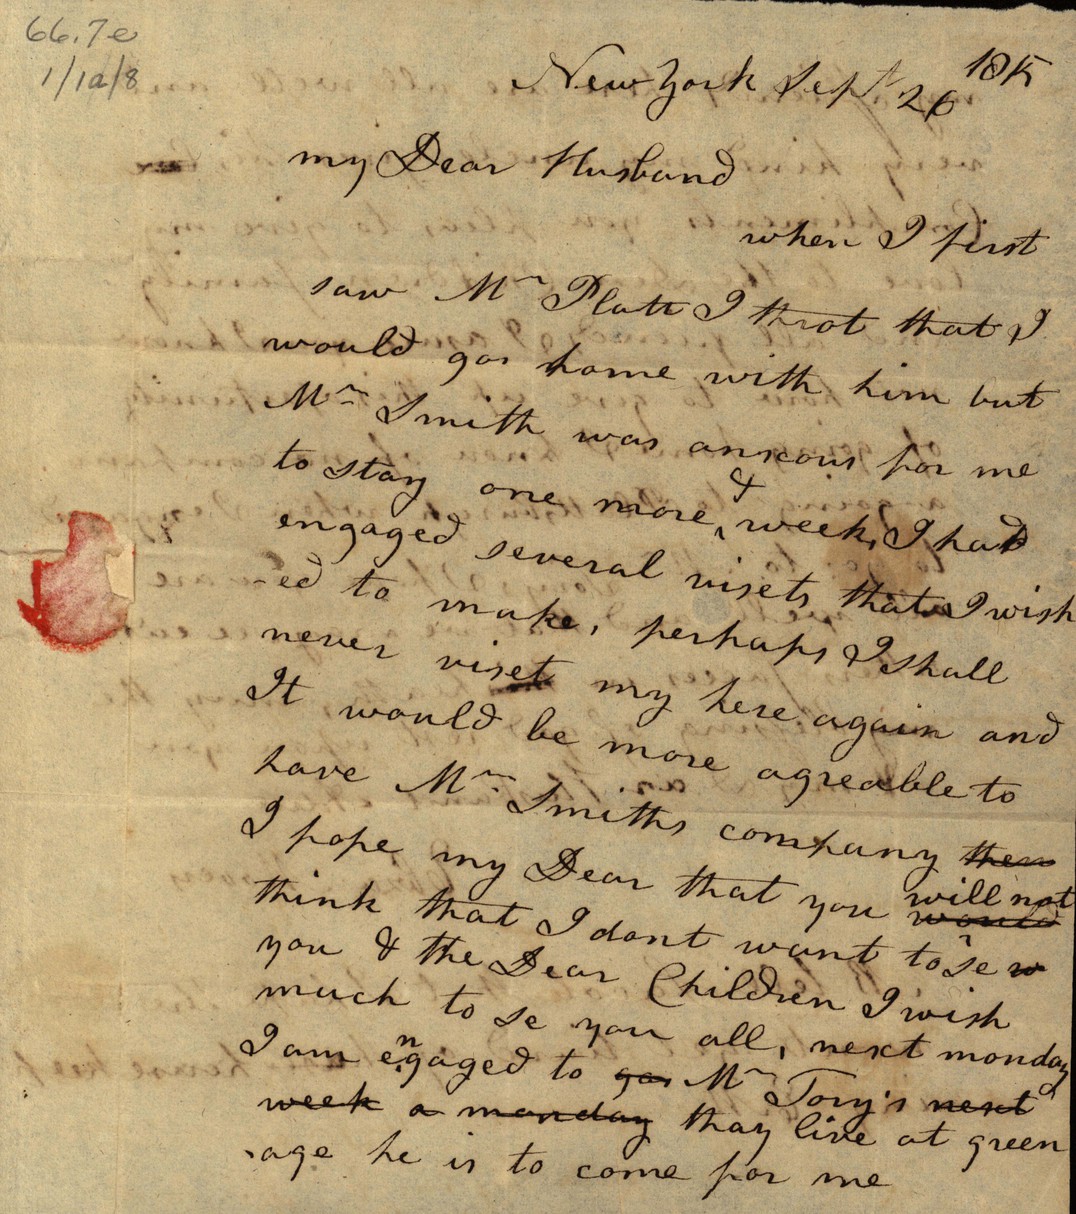 66.7e
1/1a/8
New York Sept 26 1815
my Dear Husband
when I first
saw Mr Platt I throt that I
would gos home with him but
Mrs Smith was anxous for me
to stay one more & week, I had
engaged several visets that I wish
-ed to make, perhaps I shall
never viset my here again and
It would be more agreable to
have Mrs Smiths company then
I pope my Dear that you would will not
think that I dont want to se w
you & the Dear Children I wish
much to se you all, next monday
I am engaged to gos Mr Tory's next
week a monday thay live at green
-age he is to come for me